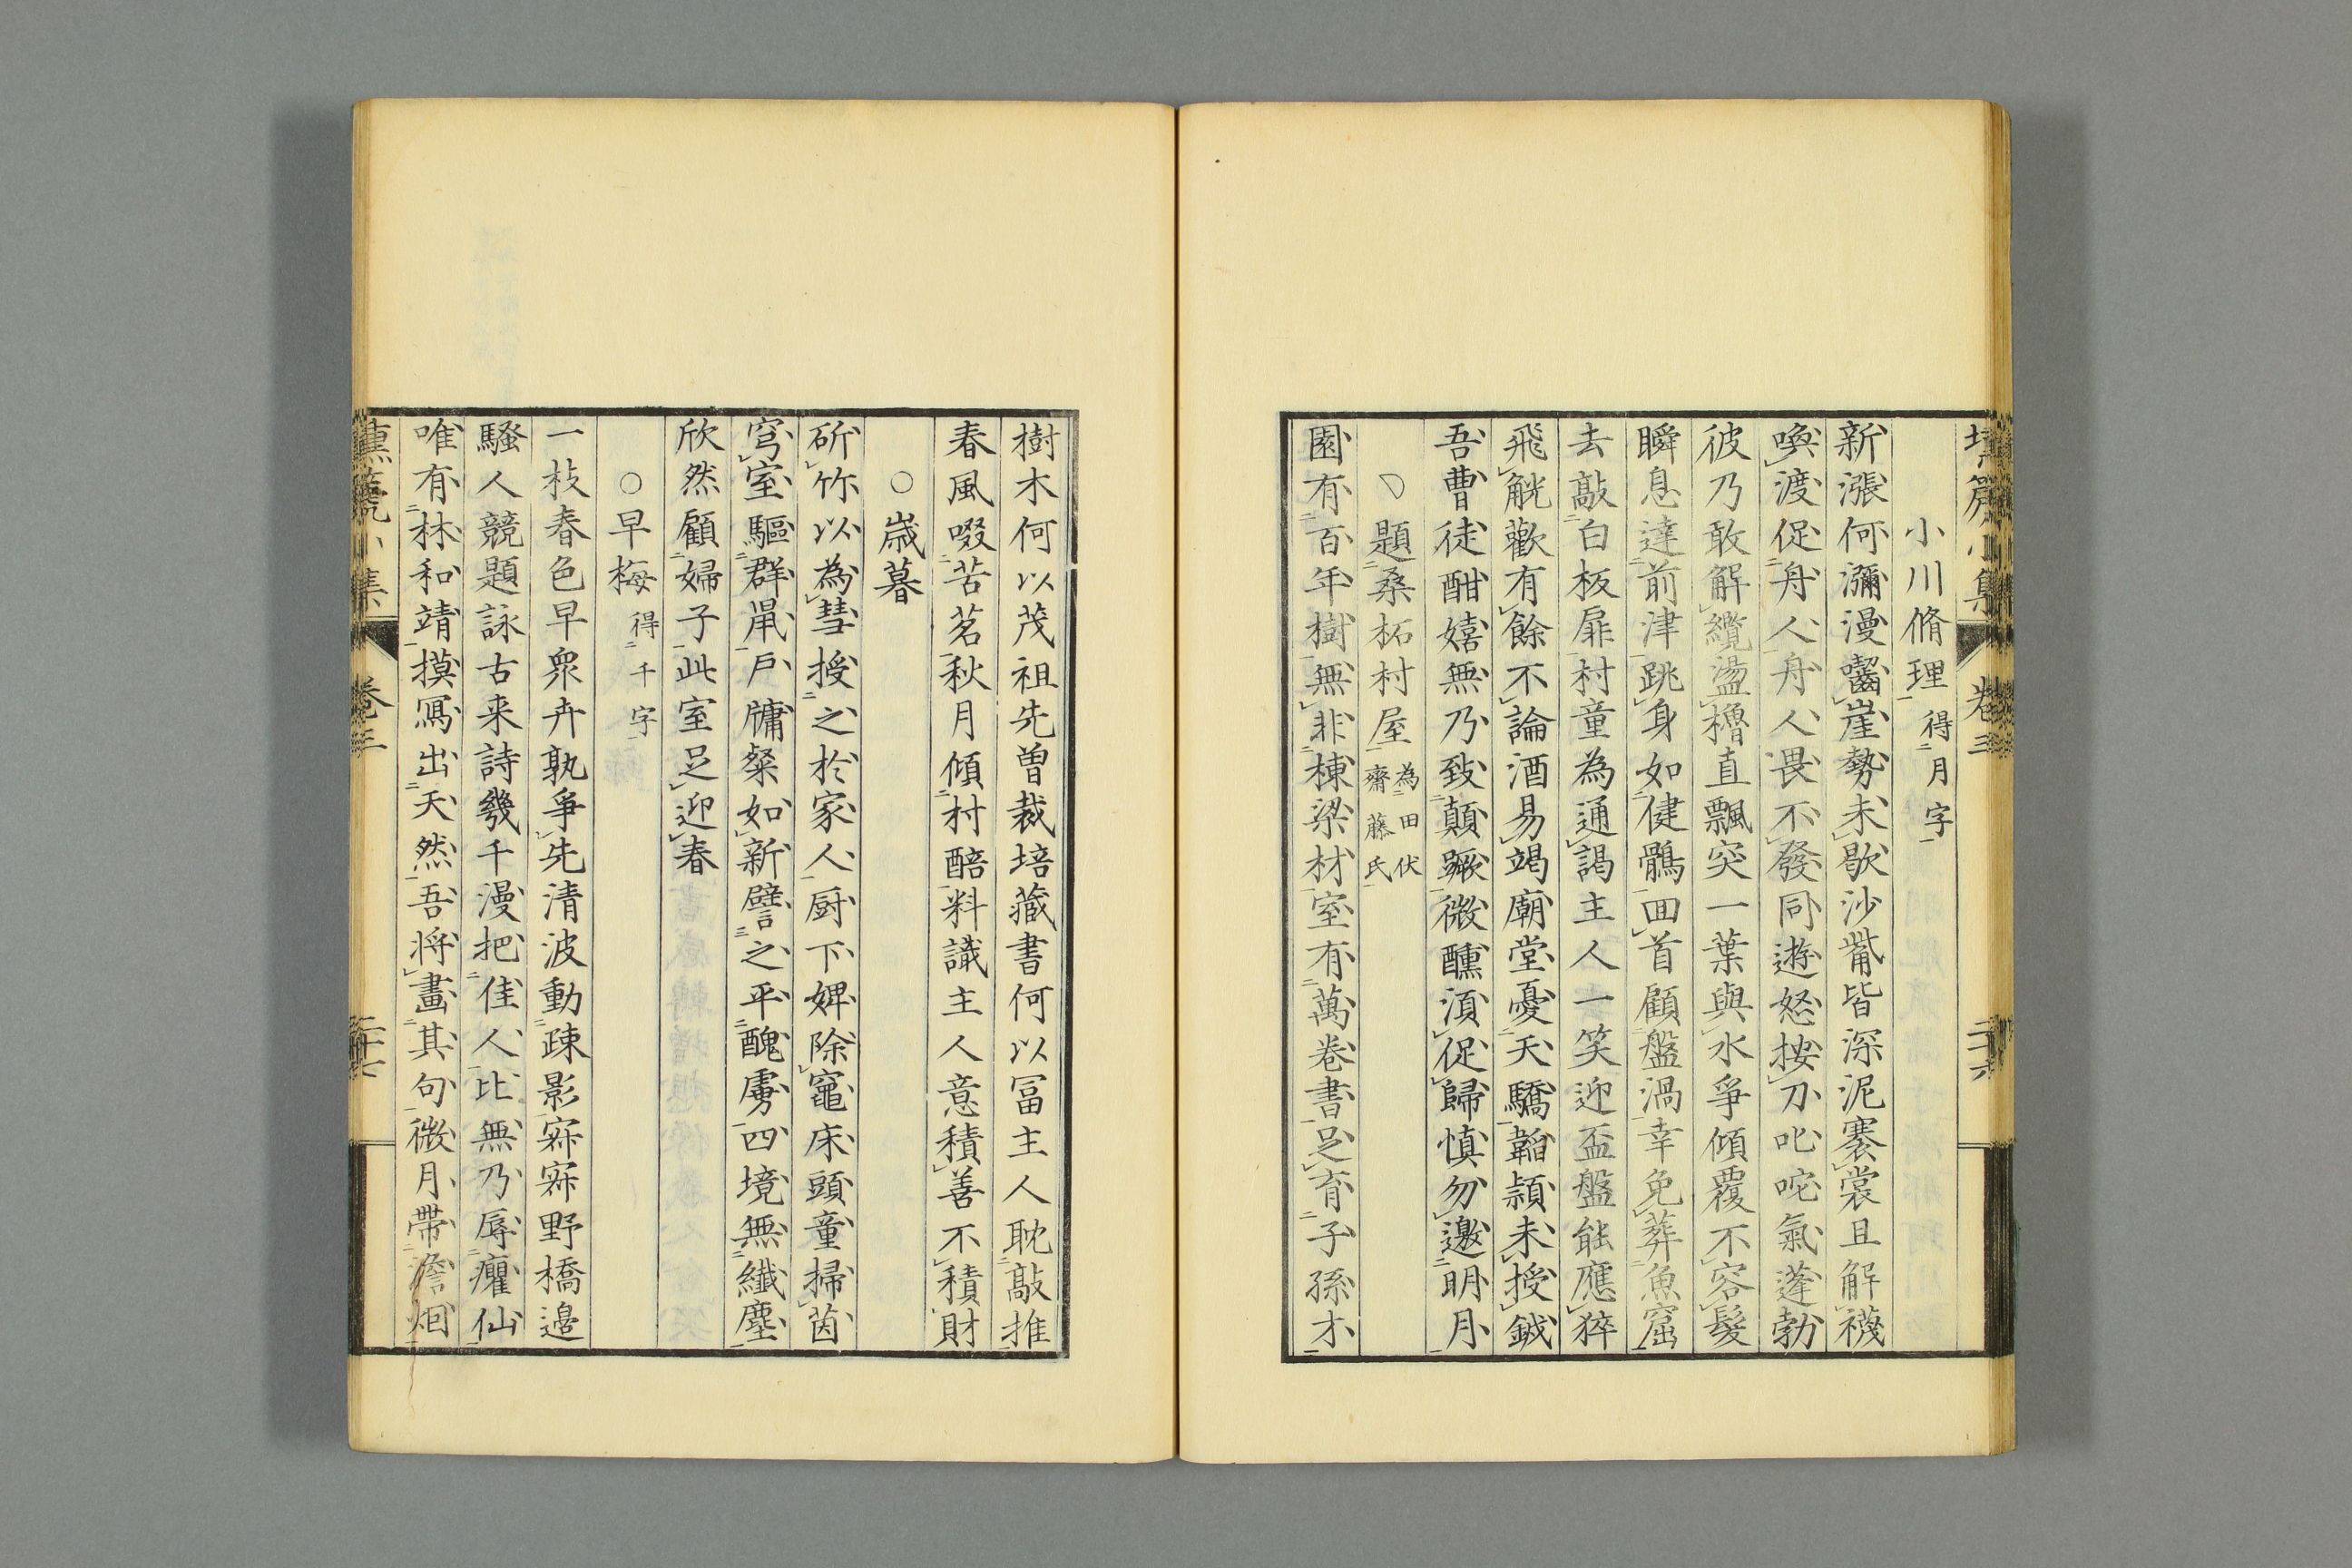 壎箎小集 卷三 二十六
小川脩理 得月字
新漲何瀰漫嚙崖勢未歇沙觜皆深泥褰裳且解襪
喚渡促舟人舟人畏不發同遊怒按刀叱咜氣蓬勃
彼乃敢解纜盪櫓直飄突一葉與水爭傾覆不容髮
瞬息達前津跳身如健鶻回首顧盤渦幸免葬魚窟
去敲白板扉村童為通謁主人一笑迎盃盤能應猝
飛觥歡有餘不論酒易竭廟堂憂天驕韜頴未授鉞
吾曹徒酣嬉無乃致顛蹶微醺湏促歸慎勿邀明月
○題桑柘村屋 為田伏齋藤氏
園有百年樹無非棟梁材室有萬卷書足育子孫才
樹木何以茂祖先曽裁培藏書何以冨主人耽敲推
春風啜苦茗秋月傾村醅料識主人意積善不積財
○歳暮
斫竹以為彗授之於家人厨下婢除竈床頭童掃茵
穹室驅群鼠戶牖粲如新譬之平醜虜四境無纖塵
欣然顧婦子此室足迎春
○早梅 得千字
一枝春色早衆卉孰爭先清波動疎影寂寂野橋邉
騷人競題詠古来詩幾千漫把佳人比無乃辱癯仙
唯有林和靖摸寫出天然吾将畫其句微月帶澹烟
卷三 二十七